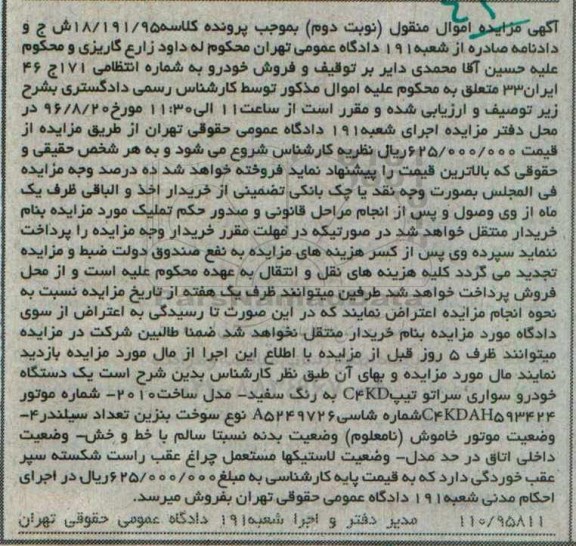 آگهی مزایده اموال منقول (نوبت دوم) بموجب پرونده کلاسه۱۸/۱۹۱/۹۵ش ج و
دادنامه صادره از شعبه۱۹۱ دادگاه عمومی تهران محکوم له داود زارع گاریزی و محکوم
علیه حسین آقا محمدی دایر بر توقیف و فروش خودرو به شماره انتظامی ۱۷۱ج ۴۶
ایران۳۳ متعلق به محکوم علیه اموال مذکور توسط کارشناس رسمی دادگستری بشرح
زیر توصیف و ارزیابی شده و مقرر است از ساعت۱۱ الی۱۱:۳۰ مورخ۹۶/۸/۲۰ در
محل دفتر مزایده اجرای شعبه۱۹۱ دادگاه عمومی حقوقی تهران از طریق مزایده از
قیمت ۶۲۵/۰۰۰/۰۰۰ریال نظریه کارشناس شروع می شود و به هر شخص حقیقی و
حقوقی که بالاترین قیمت را پیشنهاد نماید فروخته خواهد شد ده درصد وجه مزایده
فی المجلس بصورت وجه نقد یا چک بانکی تضمینی از خریدار اخذ و الباقی ظرف یک
ماه از وی وصول و پس از انجام مراحل قانونی و صدور حکم تملیک مورد مزایده بنام
خریدار منتقل خواهد شد در صورتیکه در مهلت مقرر خریدار وجه مزایده را پرداخت
ننماید سپرده وی پس از کسر هزینه های مزایده به نفع صندوق دولت ضبط و مزایده
تجدید می گردد کلیه هزینه های نقل و انتقال به عهده محکوم علیه است و از محل
فروش پرداخت خواهد شد طرفین میتوانند ظرف یک هفته از تاریخ مزایده نسبت به
نحوه انجام مزایده اعتراض نمایند که در این صورت تا رسیدگی به اعتراض از سوی
دادگاه مورد مزایده بنام خریدار منتقل نخواهد شد ضمنا طالبین شرکت در مزایده
میتوانند ظرف ۵ روز قبل از مزایده با اطلاع این اجرا از مال مورد مزایده بازدید
نمایند مال مورد مزایده و بهای آن طبق نظر کارشناس بدین شرح است یک دستگاه
خودرو سواری سراتو تیپC۴KD به رنگ سفید- مدل ساخت۲۰۱۰- شماره موتور
C۴KDAH۵۹۳۴۲۴شماره شاسیA۵۲۴۹۷۲۶ نوع سوخت بنزین تعداد سیلندر۴-
وضعیت موتور خاموش (نامعلوم) وضعیت بدنه نسبتا سالم با خط و خش- وضعیت
داخلی اتاق در حد مدل- وضعیت لاستیکها مستعمل چراغ عقب راست شکسته سپر
عقب خوردگی دارد که به قیمت پایه کارشناسی به مبلغ۶۲۵/۰۰۰/۰۰۰ریال در اجرای
احکام مدنی شعبه۱۹۱ دادگاه عمومی حقوقی تهران بفروش میرسد.
۱۱۰/۹۵۸۱۱ مدیر دفتر و اجرا شعبه۱۹۱ دادگاه عمومی حقوقی تهران